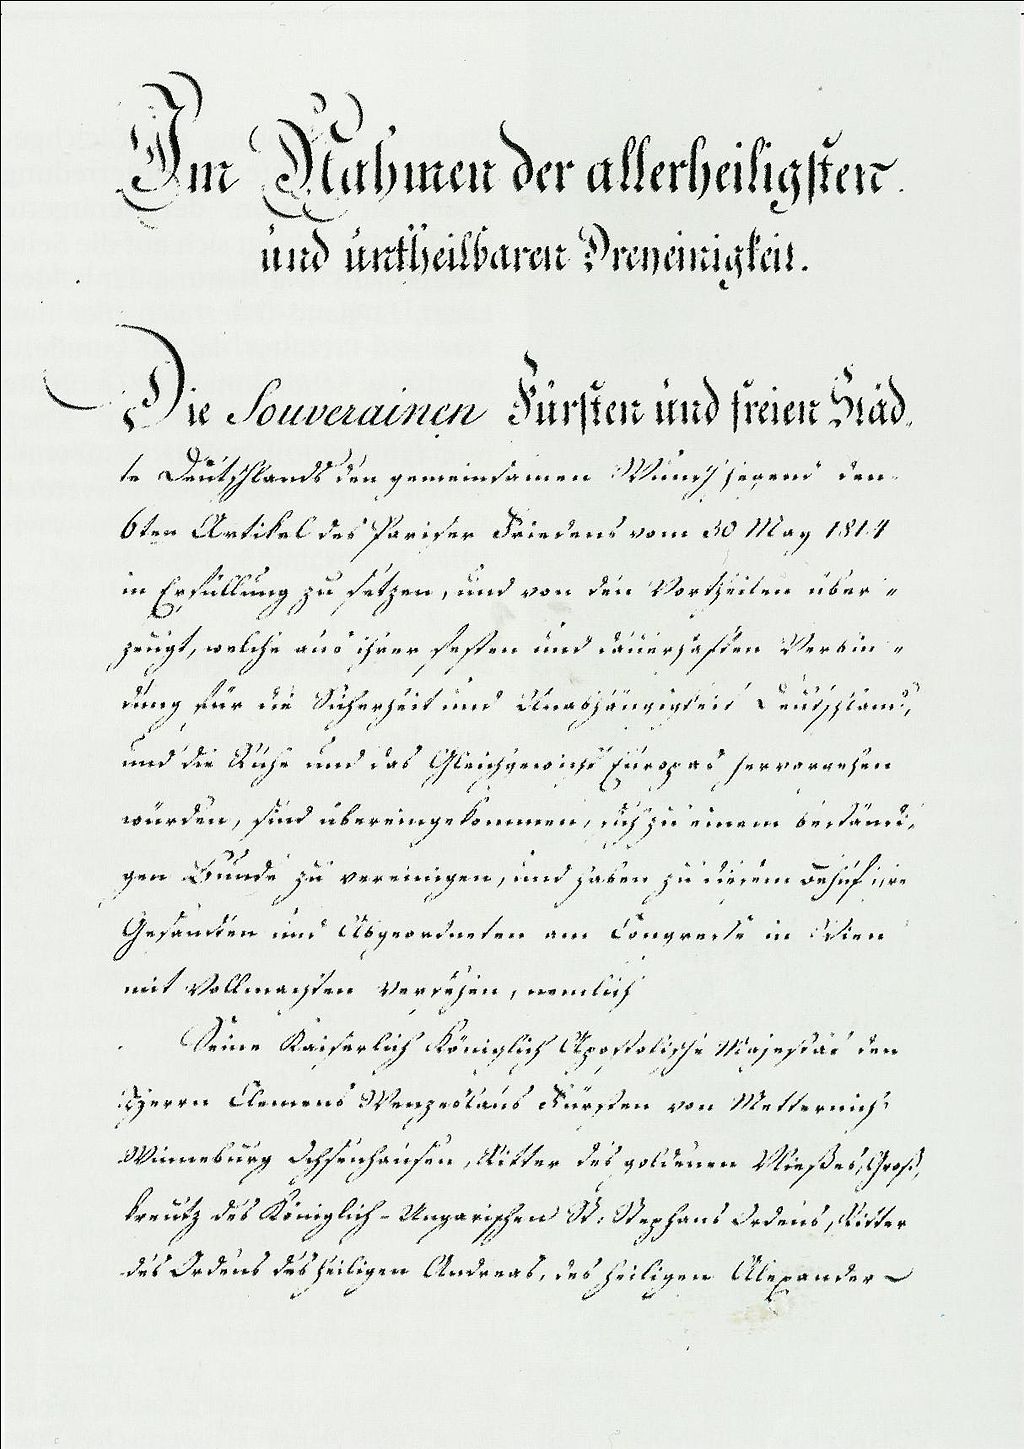 Im Nahmen der allerheiligsten
und untheilbaren Dreyeinigkeit.
Die Souverainen Fürsten und freien Städ-
te Deutschlands den gemeinsamen Wunsch hegend den
6ten Artikel des Pariser Friedens vom 30 May 1814
in Erfüllung zu setzen, und von den Vortheilen über=
zeugt, welche aus ihrer festen und dauerhaften Verbin=
dung für die Sicherheit und Unabhängigkeit Deutschlands,
und die Ruhe und das Gleichgewicht Europas hervorgehen
würden, sind übereingekommen, sich zu einem beständi-
gen Bunde zu vereinigen, und haben zu diesem Behuf ihre
Gesandten und Abgeordneten am Congresse in Wien
mit Vollmachten versehen, nemlich
Seine Kaiserlich Königlich Apostolische Majestät den
Herrn Clemens Wenzeslaus Fürsten von Metternich-
Winneburg Ochsenhausen, Ritter des goldenen Vließes, Groß-
kreutz des Königlich-Ungarischen St. Stephans Ordens, Ritter
des Ordens des heiligen Andreas, des heiligen Alexander